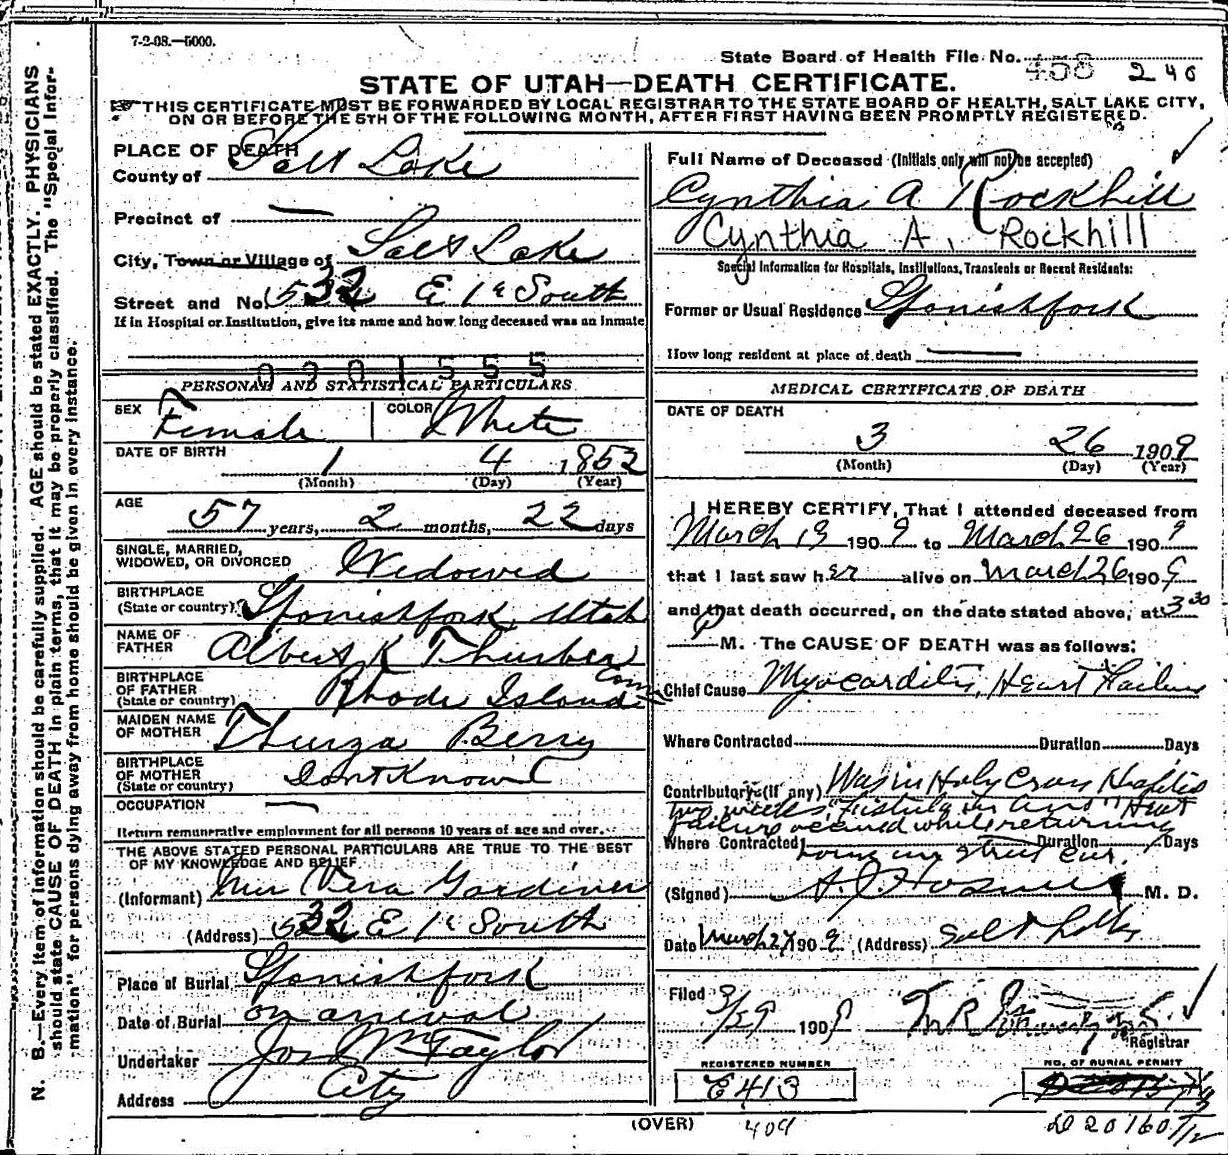 7-2-08.—5000.
State Board of Health File No. 458 240
STATE OF UTAH—DEATH CERTIFICATE.
THIS CERTIFICATE MUST BE FORWARDED BY LOCAL REGISTRAR TO THE STATE BOARD OF HEALTH, SALT LAKE CITY,
ON OR BEFORE THE 5TH OF THE FOLLOWING MONTH, AFTER FIRST HAVING BEEN PROMPTLY REGISTERED.
N. B.—Every item of information should be carefully supplied. AGE should be stated EXACTLY. PHYSICIANS
should state CAUSE OF DEATH in plain terms, that it may be properly classified. The "Special Infor-
mation" for persons dying away from home should be given in every instance.
PLACE OF DEATH
County of Salt Lake
Precinct of —
City, Town or Village of Salt Lake
Street and No. 532 E 1st South
If in Hospital or Institution, give its name and how long deceased was an inmate
0901555
PERSONAL AND STATISTICAL PARTICULARS
SEX Female COLOR White
DATE OF BIRTH 1 4 1852
(Month) (Day) (Year)
AGE
57 years, 2 months, 22 days
SINGLE, MARRIED,
WIDOWED, OR DIVORCED Widowed
BIRTHPLACE
(State or country) Spanishfork, Utah
NAME OF
FATHER Albert K Thurber
BIRTHPLACE
OF FATHER
(State or country) Rhode Island
MAIDEN NAME
OF MOTHER Thurza Berry
BIRTHPLACE
OF MOTHER
(State or country) Dont Know
OCCUPATION —
Return remunerative employment for all persons 10 years of age and over.
THE ABOVE STATED PERSONAL PARTICULARS ARE TRUE TO THE BEST
OF MY KNOWLEDGE AND BELIEF
(Informant) Mrs Vera Gardiner
(Address) 532 E 1st South
Place of Burial Spanishfork
Date of Burial on arrival
Undertaker Jos Wm Taylor
Address City
Full Name of Deceased (Initials only will not be accepted)
Cynthia A Rockhill
Cynthia A. Rockhill
Special Information for Hospitals, Institutions, Transients or Recent Residents:
Former or Usual Residence Spanishfork
How long resident at place of death —
MEDICAL CERTIFICATE OF DEATH
DATE OF DEATH
3 26 1909
(Month) (Day) (Year)
I HEREBY CERTIFY, That I attended deceased from
March 19 1909 to March 26 1909
that I last saw her alive on March 26 1909
and that death occurred, on the date stated above, at 3 30
P M. The CAUSE OF DEATH was as follows:
Chief Cause Myocarditis, Heart Failure
Where Contracted Duration Days
Contributory (if any) Was in Holy Cross Hospital
two weeks "Fistula in Ano" Heart
failure occurred while returning
Where Contracted Duration Days
home on street car.
(Signed) M. D.
Date March 27 1909 (Address) Salt Lake
Filed 3/29 1909
Registrar
REGISTERED NUMBER
E413
NO. OF BURIAL PERMIT
(OVER) 409
D 20160